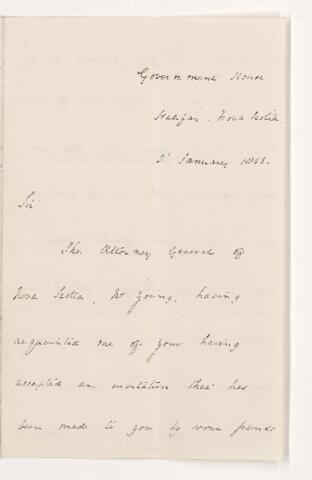 Government House.
Halifax. Nova Scotia.
January 1853.
Sir
The Attorney General of
Nova Scotia, Mr Young, having
acquainted me of your having
accepted an invitation that has
been made to you by some friends